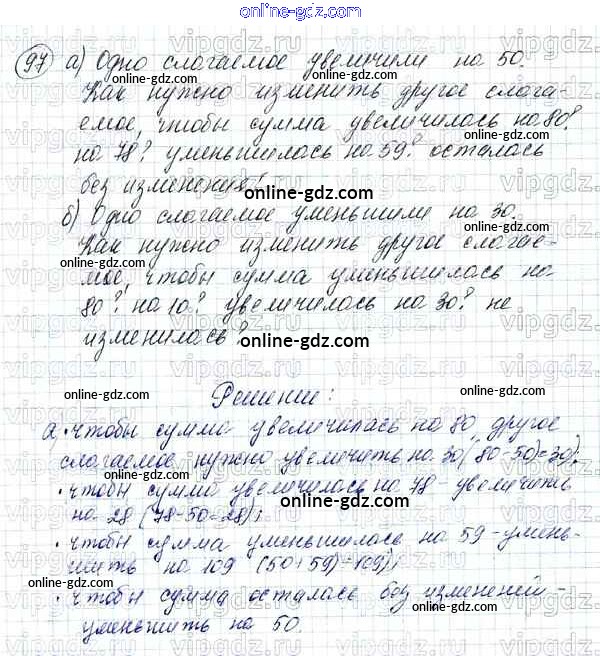 online-gdz.com
97 а) Одно слагаемое увеличили на 50.
Как нужно изменить другое слага-
емое, чтобы сумма увеличилось на 80?
на 78? уменьшилась на 59? осталась
без изменения?
online-gdz.com
б) Одно слагаемое уменьшили на 30.
Как нужно изменить другое слагае-
мое, чтобы сумма уменьшилась на
80? на 10? увеличилась на 30? не
изменилась?
online-gdz.com
Решение:
а) • чтобы сумма увеличилась на 80, другое
слагаемое нужно увеличить на 30 (80-50)=30);
• чтобы сумма увеличилась на 78 - увеличить
на 28 (78-50=28);
• чтобы сумма уменьшилась на 59 - умень-
шить на 109 (50+59)=109);
• чтобы сумма осталась без изменений -
уменьшить на 50.